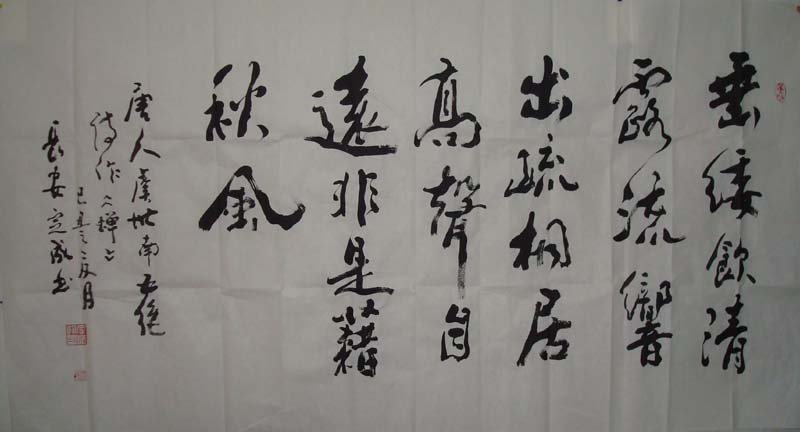 垂緌飲清
露流響
出疏桐居
高聲自
遠非是藉
秋風
唐人虞世南五绝
诗作《蟬》
己丑月
長安书